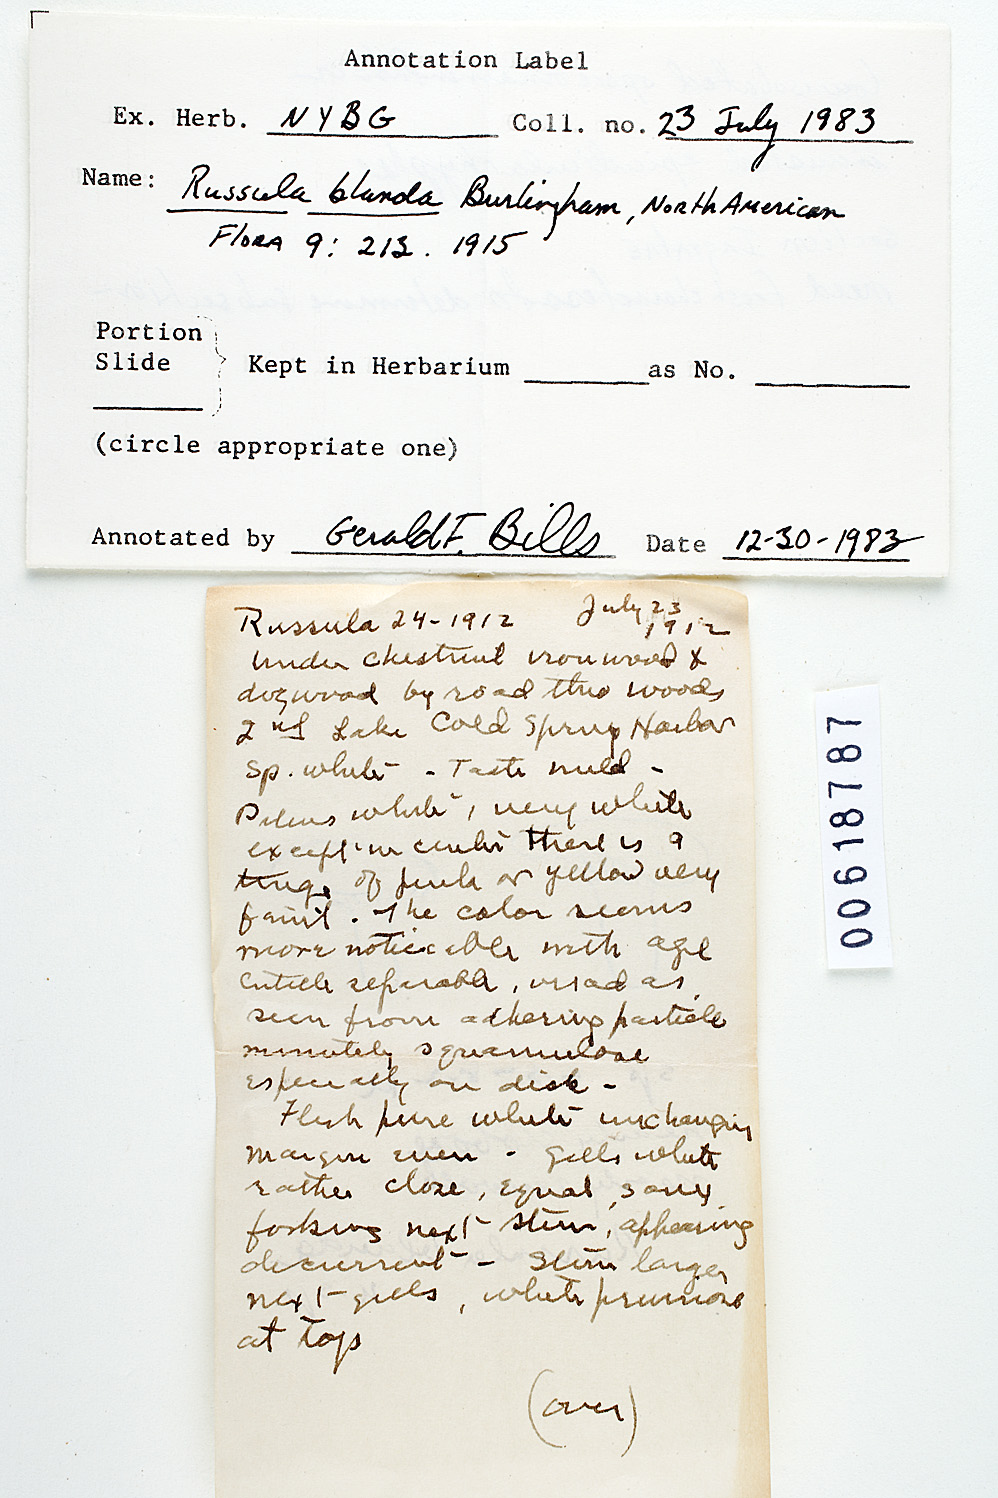 Annotation Label
Ex. Herb. NYBG Coll. no. 23 July 1983
Name: Russula blanda Burlingham, North American
Flora 9: 213. 1915
Portion
Slide
Kept in Herbarium as No.
(circle appropriate one)
Annotated by Gerald F. Bills Date 12-30-1983
Russula 24-1912 July 23
1912
Under chestnut ironwood &
dogwood by road thro woods
2nd Lake Cold Spring Harbor
Sp. white - Taste mild -
Pileus white, very white
except in center there is a
tinge of pink or yellow very
faint. The color seems
more noticeable with age
Cuticle separable, viscid as
seen from adhering particle
minutely squamulose
especially on disk -
Flesh pure white unchanging
Margin even - gills white
rather close, equal, some
forking next stem, appearing
decurrent - Stem larger
next gills, white pruinose
at top
(over)
00618787